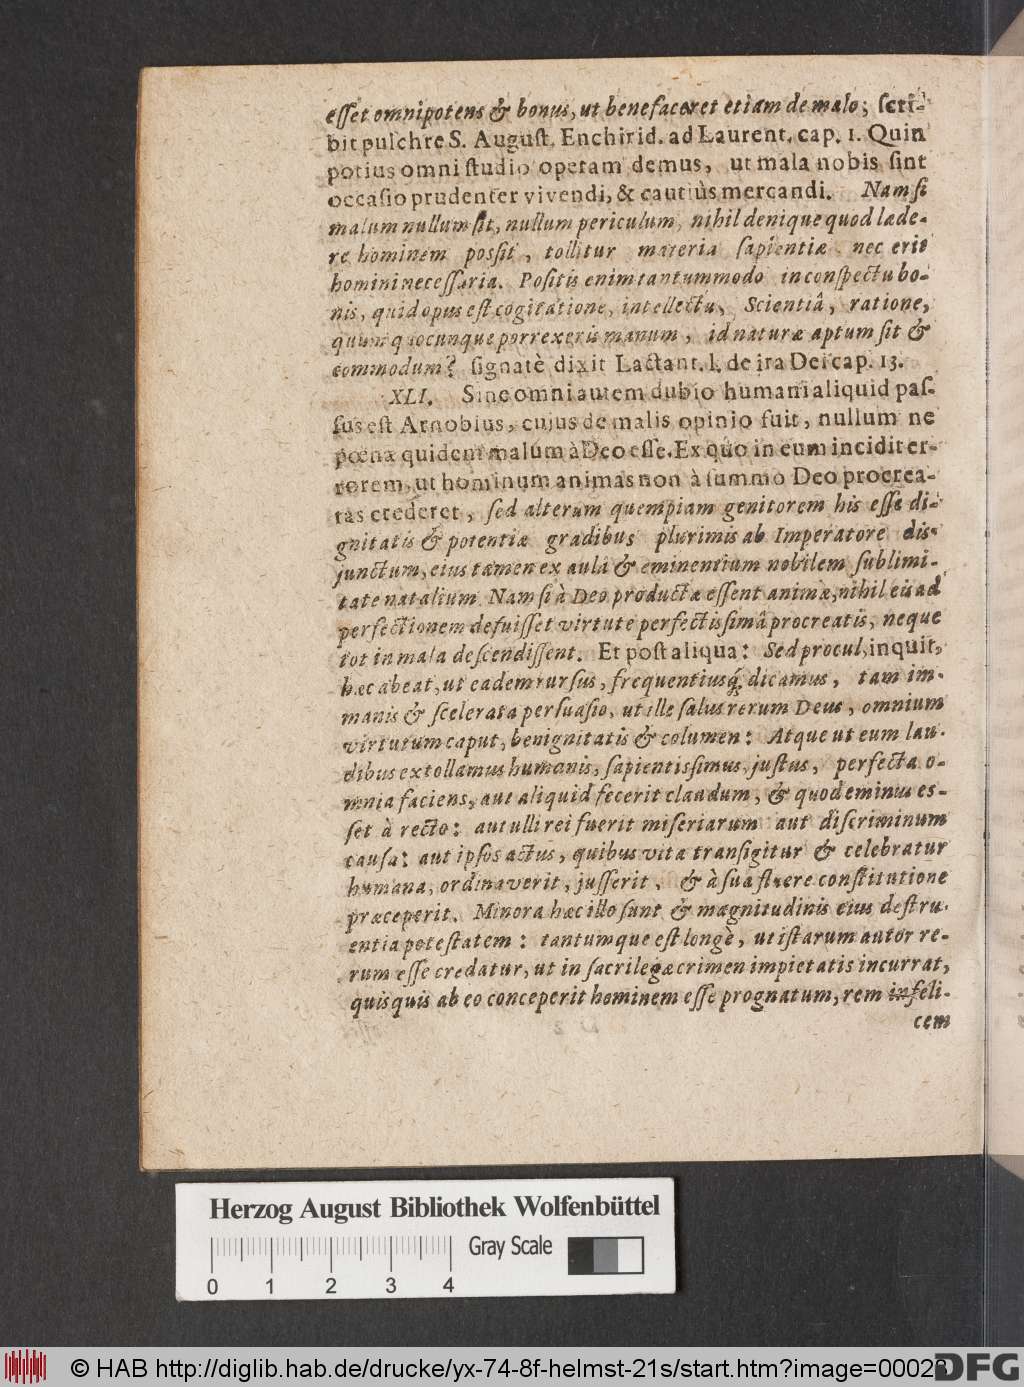 esset omnipotens & bonus, ut benefaceret etiam de malo; scri-
bit pulchre S. August. Enchirid. ad Laurent. cap. 1. Quin
potius omni studio operam demus, ut mala nobis sint
occasio prudenter vivendi, & cautiùs mercandi. Nam si
malum nullum sit, nullum periculum, nihil denique quod læde-
re hominem possit, tollitur materia sapientiæ nec erit
homini necessaria. Positis enim tantummodo in conspectu bo-
nis, quid opus est cogitatione, intellectu, Scientiâ, ratione,
quum quocunque porrexeris manum, id naturæ aptum sit &
commodum? signatè dixit Lactant. l. de ira Dei cap. 13.
XLI. Sine omni autem dubio humani aliquid pas-
sus est Arnobius, cujus de malis opinio fuit, nullum ne
pœnæ quidem malum à Deo esse. Ex quo in eum incidit er-
rorem, ut hominum animas non à summo Deo procrea-
tas crederet, sed alterum quempiam genitorem his esse di-
gnitatis & potentiæ gradibus plurimis ab Imperatore dis-
junctum, eius tamen ex aulâ & eminentium nobilem sublimi-
tate natalium Nam si à Deo productæ essent animæ, nihil eis ad
perfectionem defuisset virtute perfectissimâ procreatis, neque
tot in mala descendissent. Et post aliqua: Sed procul, inquit,
hæc abeat, ut eadem rursus, frequentiusq́; dicamus, tam im-
manis & scelerata persuasio, ut ille salus rerum Deus, omnium
virtutum caput, benignitatis & columen: Atque ut eum lau-
dibus extollamus humanis, sapientissimus, justus, perfecta o-
mnia faciens, aut aliquid fecerit claudum, & quod eminus es-
set à recto: aut ulli rei fuerit miseriarum aut discriminum
causa: aut ipsos actus, quibus vita transigitur & celebratur
humana, ordinaverit, jusserit, & à sua fluere constitutione
præceperit. Minora hæc illo sunt & magnitudinis eius destru-
entia potestatem: tantumque est longè, ut istarum autor re-
rum esse credatur, ut in sacrilegæ crimen impietatis incurrat,
quisquis ab eo conceperit hominem esse prognatum, rem infeli-
cem
Herzog August Bibliothek Wolfenbüttel
Gray Scale
0 1 2 3 4
© HAB http://diglib.hab.de/drucke/yx-74-8f-helmst-21s/start.htm?image=00028
DFG